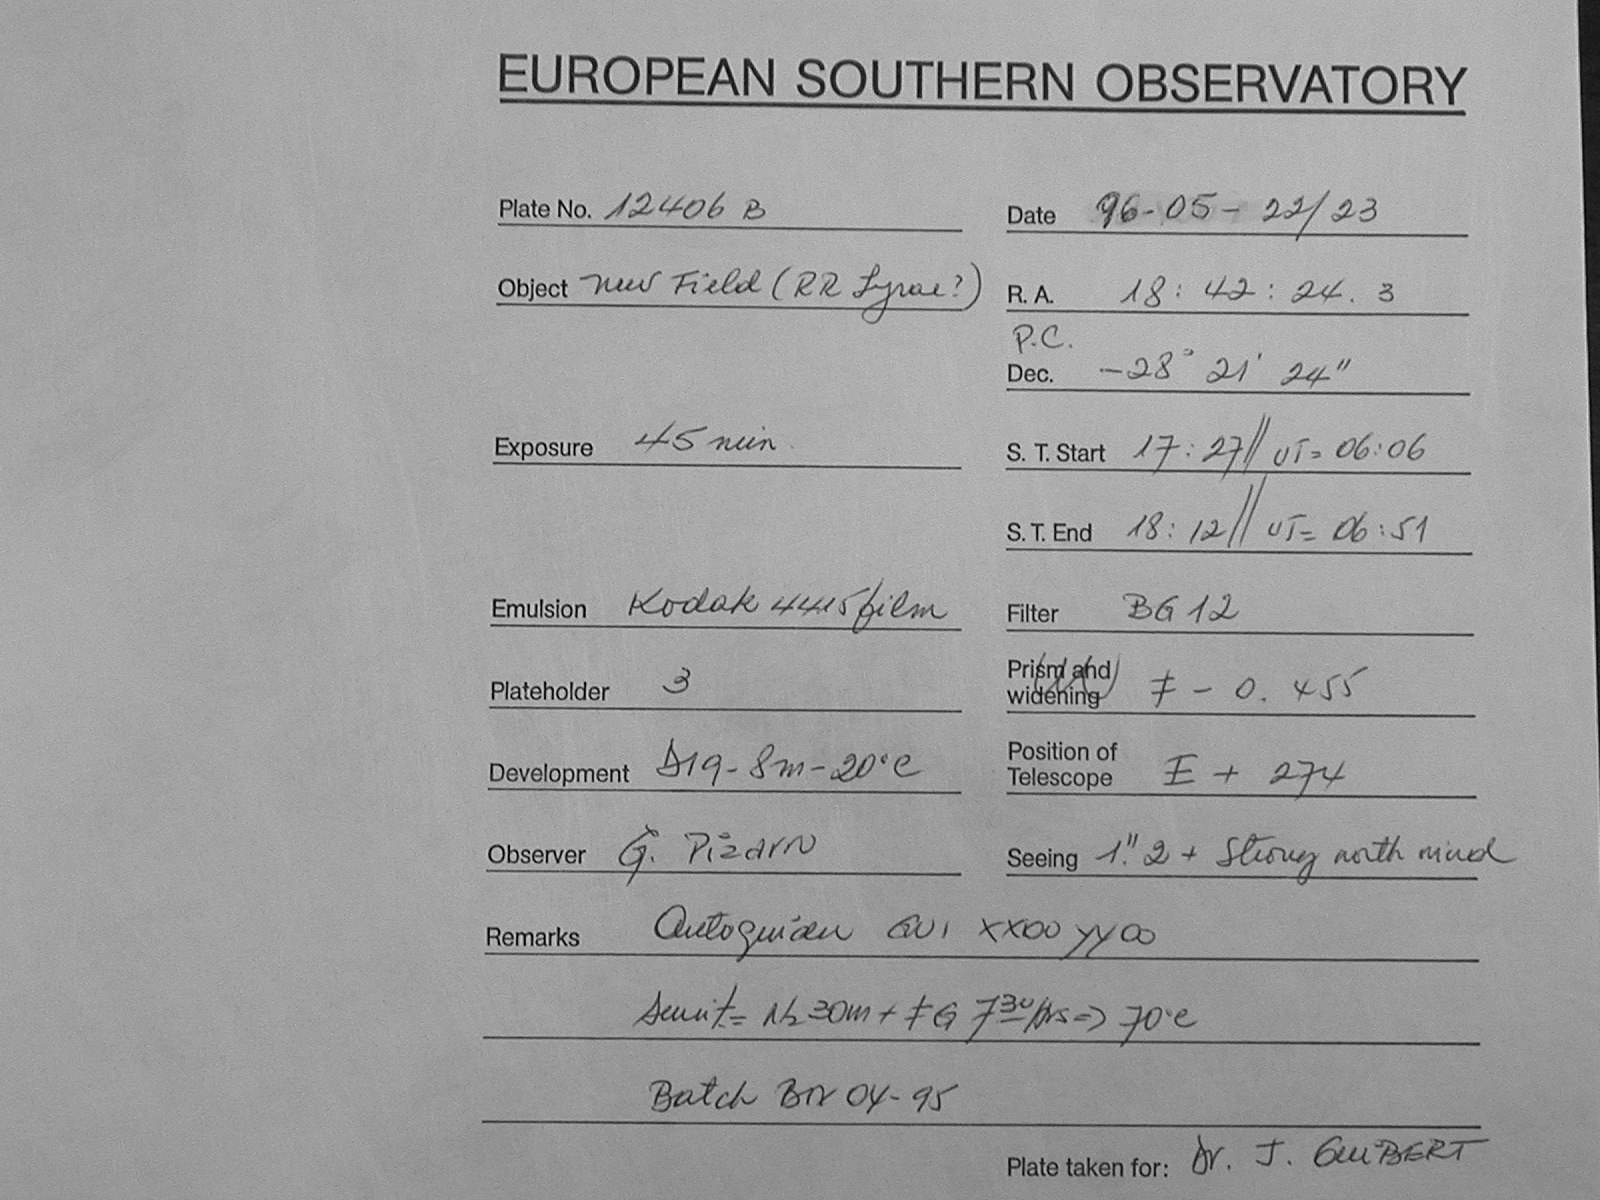 EUROPEAN SOUTHERN OBSERVATORY
Plate No. 12406 B
Date 96-05-22/23
Object New Field (RR Lyrae?)
R. A. 18: 42: 24. 3
P.C.
Dec. -28° 21' 24"
Exposure 45 min.
S. T. Start 17:27// UT= 06:06
S. T. End 18:12// UT= 06:51
Emulsion Kodak 4415 film
Filter BG 12
Plateholder 3
Prism and widening F - 0. 455
Development D19-8m-20°C
Position of Telescope E + 274
Observer G. Pizarro
Seeing 1".2 + Strong north wind
Remarks Autoguider GU1 XX00 YY00
N2 30m + FG 7 30/hrs => 70°C
Batch 04-95
Plate taken for: Dr. J. GUIBERT